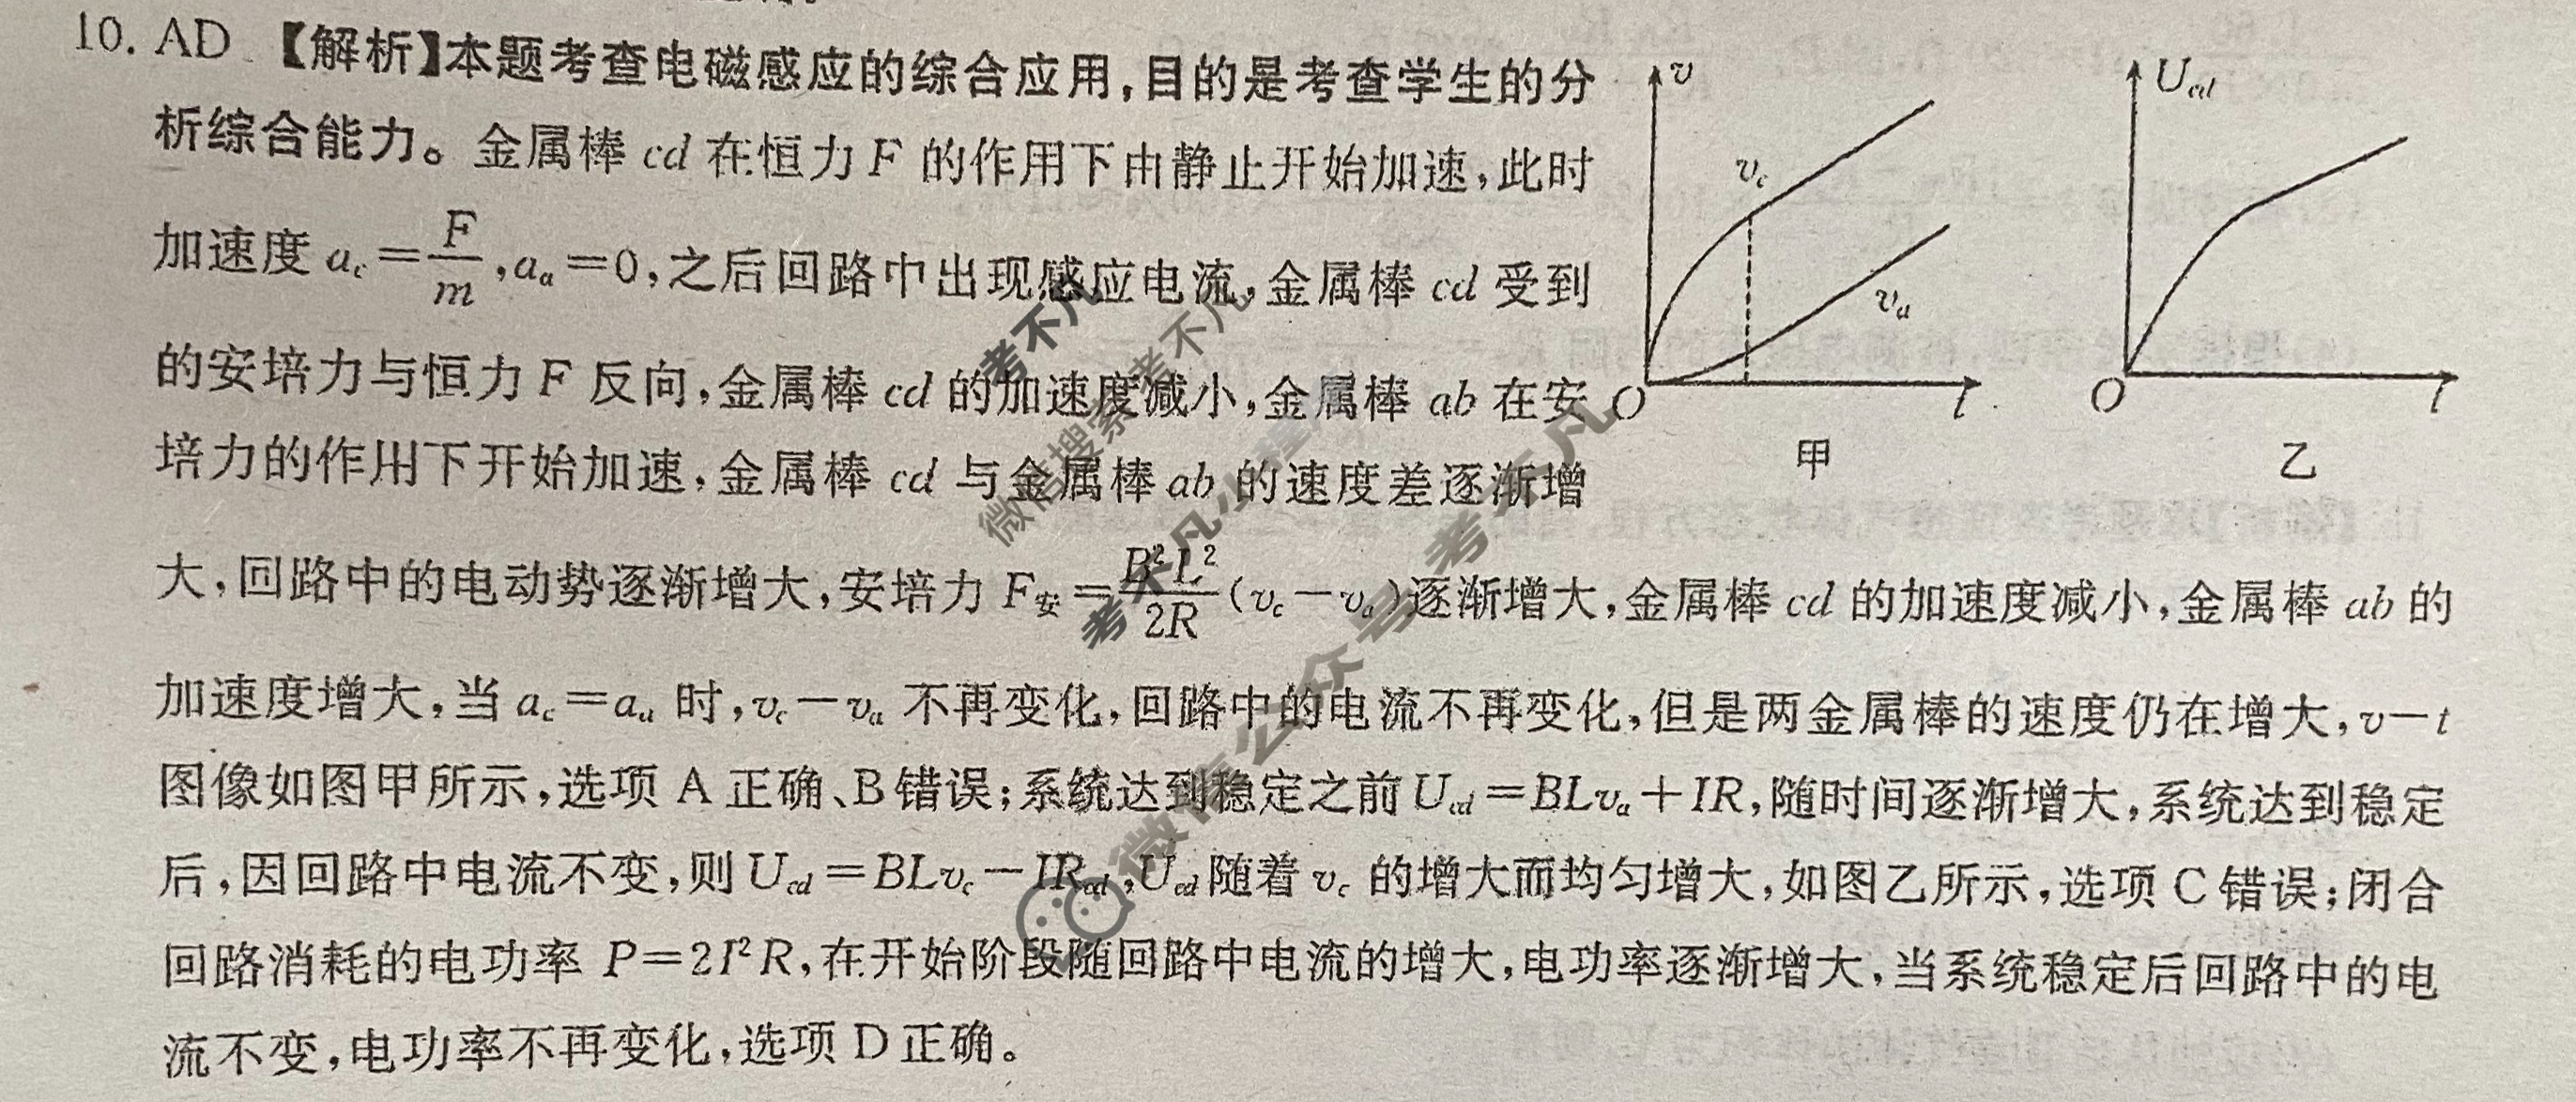 10. AD 【解析】本题考查电磁感应的综合应用,目的是考查学生的分
析综合能力。金属棒 cd 在恒力 F 的作用下由静止开始加速,此时
加速度 a_c=F/m,a_a=0,之后回路中出现感应电流,金属棒 cd 受到
的安培力与恒力 F 反向,金属棒 cd 的加速度减小,金属棒 ab 在安
培力的作用下开始加速,金属棒 cd 与金属棒 ab 的速度差逐渐增
大,回路中的电动势逐渐增大,安培力 F_安=B²L²/2R(v_c-v_a)逐渐增大,金属棒 cd 的加速度减小,金属棒 ab 的
加速度增大,当 a_c=a_a 时,v_c-v_a 不再变化,回路中的电流不再变化,但是两金属棒的速度仍在增大,v-t
图像如图甲所示,选项 A 正确、B 错误;系统达到稳定之前 U_cd=BLv_a+IR,随时间逐渐增大,系统达到稳定
后,因回路中电流不变,则 U_cd=BLv_c-IR_cd,U_cd 随着 v_c 的增大而均匀增大,如图乙所示,选项 C 错误;闭合
回路消耗的电功率 P=2I²R,在开始阶段随回路中电流的增大,电功率逐渐增大,当系统稳定后回路中的电
流不变,电功率不再变化,选项 D 正确。
v
v_c
v_a
O
t
甲
U_cd
O
t
乙
考不凡
微信搜索 考不凡
考不凡小程序
微信公众号 考不凡